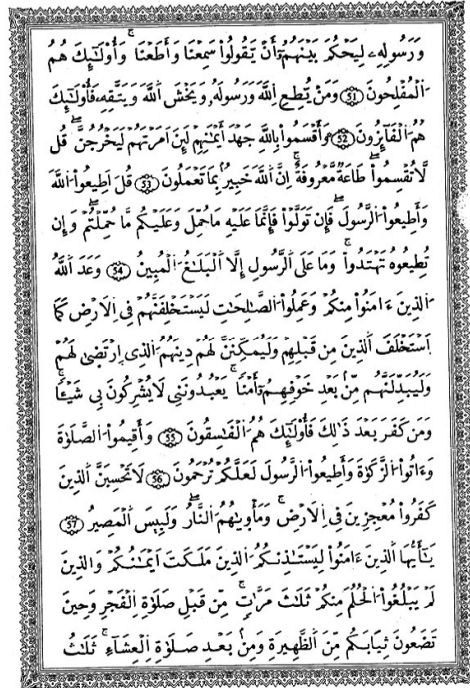 وَرَسُولِهِۦ لِيَحْكُمَ بَيْنَهُمُۥٓ أَنْ يَّقُولُواْ سَمِعْنَا وَأَطَعْنَا ۚ وَأُوْلَٰٓئِكَ هُمُ
اُ۬لْمُفْلِحُونَ 51 وَمَنْ يُّطِعِ اِ۬للَّهَ وَرَسُولَهُۥ وَيَخْشَ اَ۬للَّهَ وَيَتَّقِهِۦ فَأُوْلَٰٓئِكَ
هُمُ اُ۬لْفَآئِزُونَ 52 وَأَقْسَمُواْ بِاللَّهِ جَهْدَ أَيْمَٰنِهِمْ لَئِنَ اَمَرْتَهُمْ لَيَخْرُجُنَّ ۖ قُل
لَّا تُقْسِمُواْ ۖ طَاعَةٌ مَّعْرُوفَةٌ ۚ اِنَّ اَ۬للَّهَ خَبِيرٌۢ بِمَا تَعْمَلُونَ 53 قُلَ اَطِيعُواْ اُ۬للَّهَ
وَأَطِيعُواْ اُ۬لرَّسُولَ ۖ فَإِن تَوَلَّوْاْ فَإِنَّمَا عَلَيْهِ مَا حُمِّلَ وَعَلَيْكُم مَّا حُمِّلْتُمْ ۖ وَإِن
تُطِيعُوهُ تَهْتَدُواْ ۚ وَمَا عَلَى اَ۬لرَّسُولِ إِلَّا اَ۬لْبَلَٰغُ اُ۬لْمُبِينُ 54 وَعَدَ اَ۬للَّهُ
اُ۬لذِينَ ءَامَنُواْ مِنكُمْ وَعَمِلُواْ اُ۬لصَّٰلِحَٰتِ لَيَسْتَخْلِفَنَّهُمْ فِي اِ۬لَارْضِ كَمَا
اَ۪سْتَخْلَفَ اَ۬لذِينَ مِن قَبْلِهِمْ وَلَيُمَكِّنَنَّ لَهُمْ دِينَهُمُ اُ۬لذِي اِ۪رْتَضَىٰ لَهُمْ
وَلَيُبَدِّلَنَّهُم مِّنۢ بَعْدِ خَوْفِهِمُۥٓ أَمْناً ۚ يَعْبُدُونَنِي لَا يُشْرِكُونَ بِي شَيْـٔاً ۚ
وَمَن كَفَرَ بَعْدَ ذَٰلِكَ فَأُوْلَٰٓئِكَ هُمُ اُ۬لْفَٰسِقُونَ 55 وَأَقِيمُواْ اُ۬لصَّلَوٰةَ
وَءَاتُواْ اُ۬لزَّكَوٰةَ وَأَطِيعُواْ اُ۬لرَّسُولَ لَعَلَّكُمْ تُرْحَمُونَ 56 لَا تَحْسِبَنَّ اَ۬لذِينَ
كَفَرُواْ مُعْجِزِينَ فِي اِ۬لَارْضِ ۚ وَمَأْوٜيٰهُمُ اُ۬لنَّارُ ۖ وَلَبِيسَ اَ۬لْمَصِيرُ 57
يَٰٓأَيُّهَا اَ۬لذِينَ ءَامَنُواْ لِيَسْتَٰٔذِنكُمُ اُ۬لذِينَ مَلَكَتَ اَيْمَٰنُكُمْ وَالذِينَ
لَمْ يَبْلُغُواْ اُ۬لْحُلُمَ مِنكُمْ ثَلَٰثَ مَرَّٰتٍ ۚ مِّن قَبْلِ صَلَوٰةِ اِ۬لْفَجْرِ وَحِينَ
تَضَعُونَ ثِيَابَكُم مِّنَ اَ۬لظَّهِيرَةِ وَمِنۢ بَعْدِ صَلَوٰةِ اِ۬لْعِشَآءِ ۚ ثَلَٰثُ